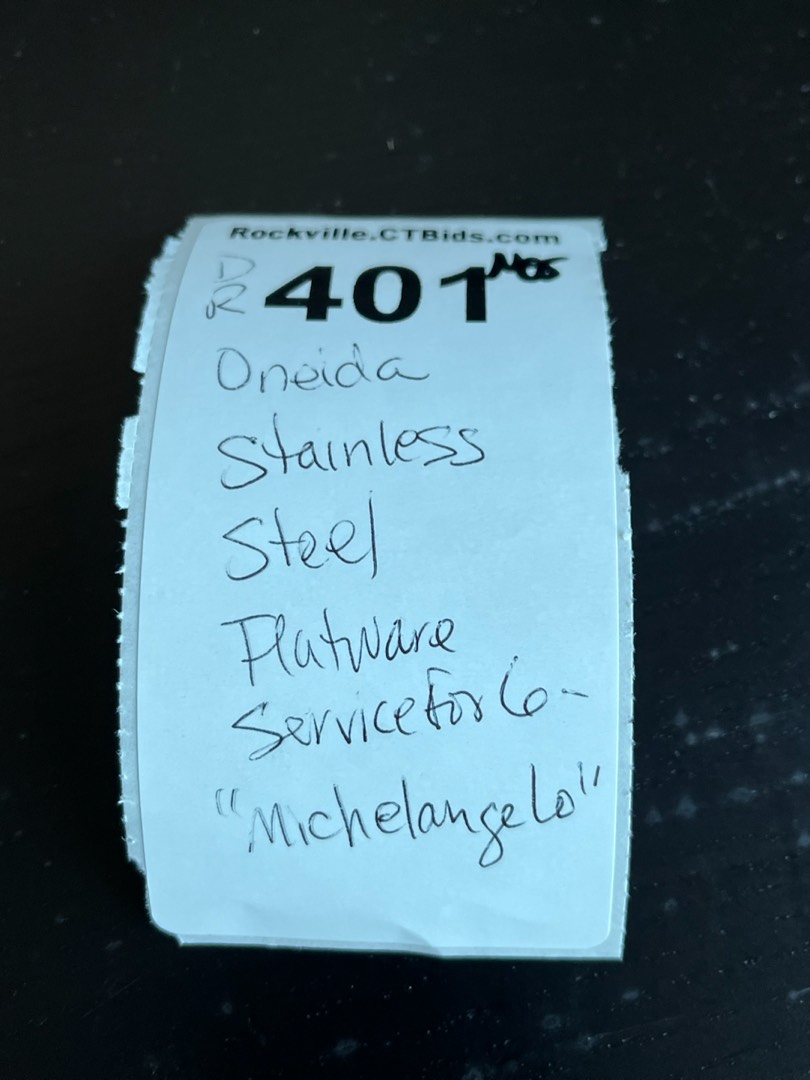 Rockville.CTBids.com
DR 401
Oneida
Stainless
Steel
Flatware
Service for 6-
"Michelangelo"